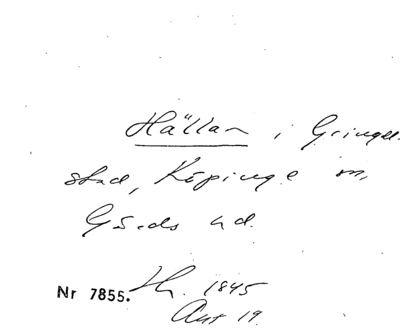 Hällan i Gringel-
stad, Köpinge sn,
Gärds hd.
Nr 7855. Hr. 1845
Ant 19.